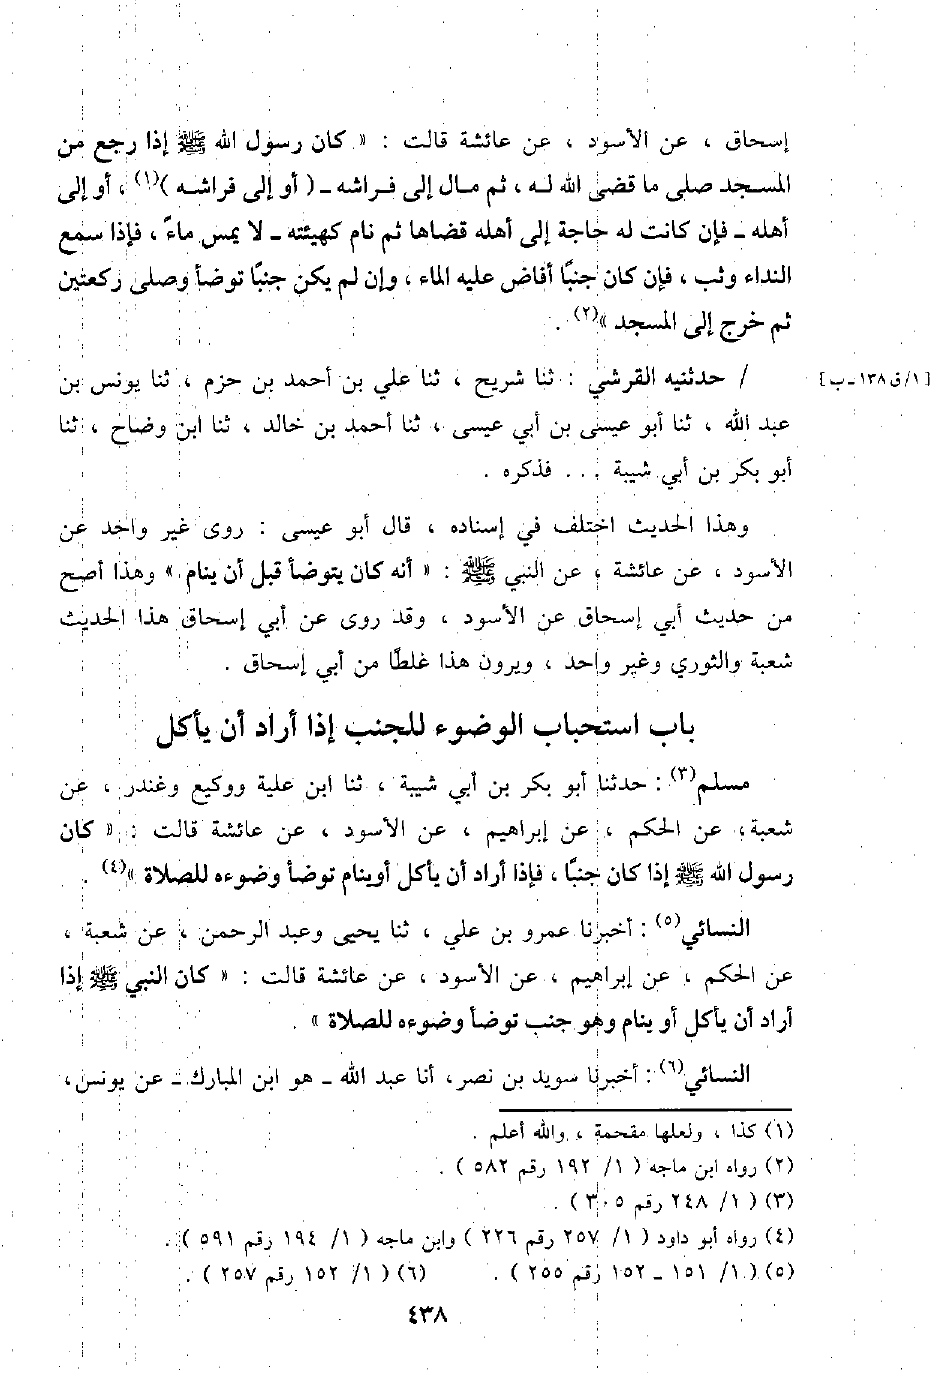 إسحاق ، عن الأسود ، عن عائشة قالت : « كان رسول الله ﷺ إذا رجع من
المسجد صلى ما قضى الله له ، ثم مال إلى فراشه ـ ( أو إلى فراشه )(١) ، أو إلى
أهله ـ فإن كانت له حاجة إلى أهله قضاها ثم نام كهيئته ـ لا يمس ماءً ، فإذا سمع
النداء وثب ، فإن كان جنبًا أفاض عليه الماء ، وإن لم يكن جنبًا توضأ وصلى ركعتين
ثم خرج إلى المسجد »(٢) .
/ حدثنيه القرشي : ثنا شريح ، ثنا علي بن أحمد بن حزم ، ثنا يونس بن [ ١/ق ١٣٨ ـ ب ]
عبد الله ، ثنا أبو عيسى بن أبي عيسى ، ثنا أحمد بن خالد ، ثنا ابن وضاح ، ثنا
أبو بكر بن أبي شيبة ... فذكره .
وهذا الحديث اختلف في إسناده ، قال أبو عيسى : روى غير واحد عن
الأسود ، عن عائشة ، عن النبي ﷺ : « أنه كان يتوضأ قبل أن ينام » وهذا أصح
من حديث أبي إسحاق عن الأسود ، وقد روى عن أبي إسحاق هذا الحديث
شعبة والثوري وغير واحد ، ويرون هذا غلطًا من أبي إسحاق .
باب استحباب الوضوء للجنب إذا أراد أن يأكل
مسلم(٣) : حدثنا أبو بكر بن أبي شيبة ، ثنا ابن علية ووكيع وغندر ، عن
شعبة ، عن الحكم ، عن إبراهيم ، عن الأسود ، عن عائشة قالت : « كان
رسول الله ﷺ إذا كان جنبًا ، فإذا أراد أن يأكل أوينام توضأ وضوءه للصلاة »(٤) .
النسائي(٥) : أخبرنا عمرو بن علي ، ثنا يحيى وعبد الرحمن ، عن شعبة ،
عن الحكم ، عن إبراهيم ، عن الأسود ، عن عائشة قالت : « كان النبي ﷺ إذا
أراد أن يأكل أو ينام وهو جنب توضأ وضوءه للصلاة » .
النسائي(٦) : أخبرنا سويد بن نصر ، أنا عبد الله ـ هو ابن المبارك ـ عن يونس ،
(١) كذا ، ولعلها مقحمة ، والله أعلم .
(٢) رواه ابن ماجه ( ١/ ١٩٢ رقم ٥٨٢ ) .
(٣) ( ١/ ٢٤٨ رقم ٣٠٥ ) .
(٤) رواه أبو داود ( ١/ ٢٥٧ رقم ٢٢٦ ) وابن ماجه ( ١/ ١٩٤ رقم ٥٩١ ) .
(٥) ( ١/ ١٥١ ـ ١٥٢ رقم ٢٥٥ ) . (٦) ( ١/ ١٥٢ رقم ٢٥٧ ) .
٤٣٨